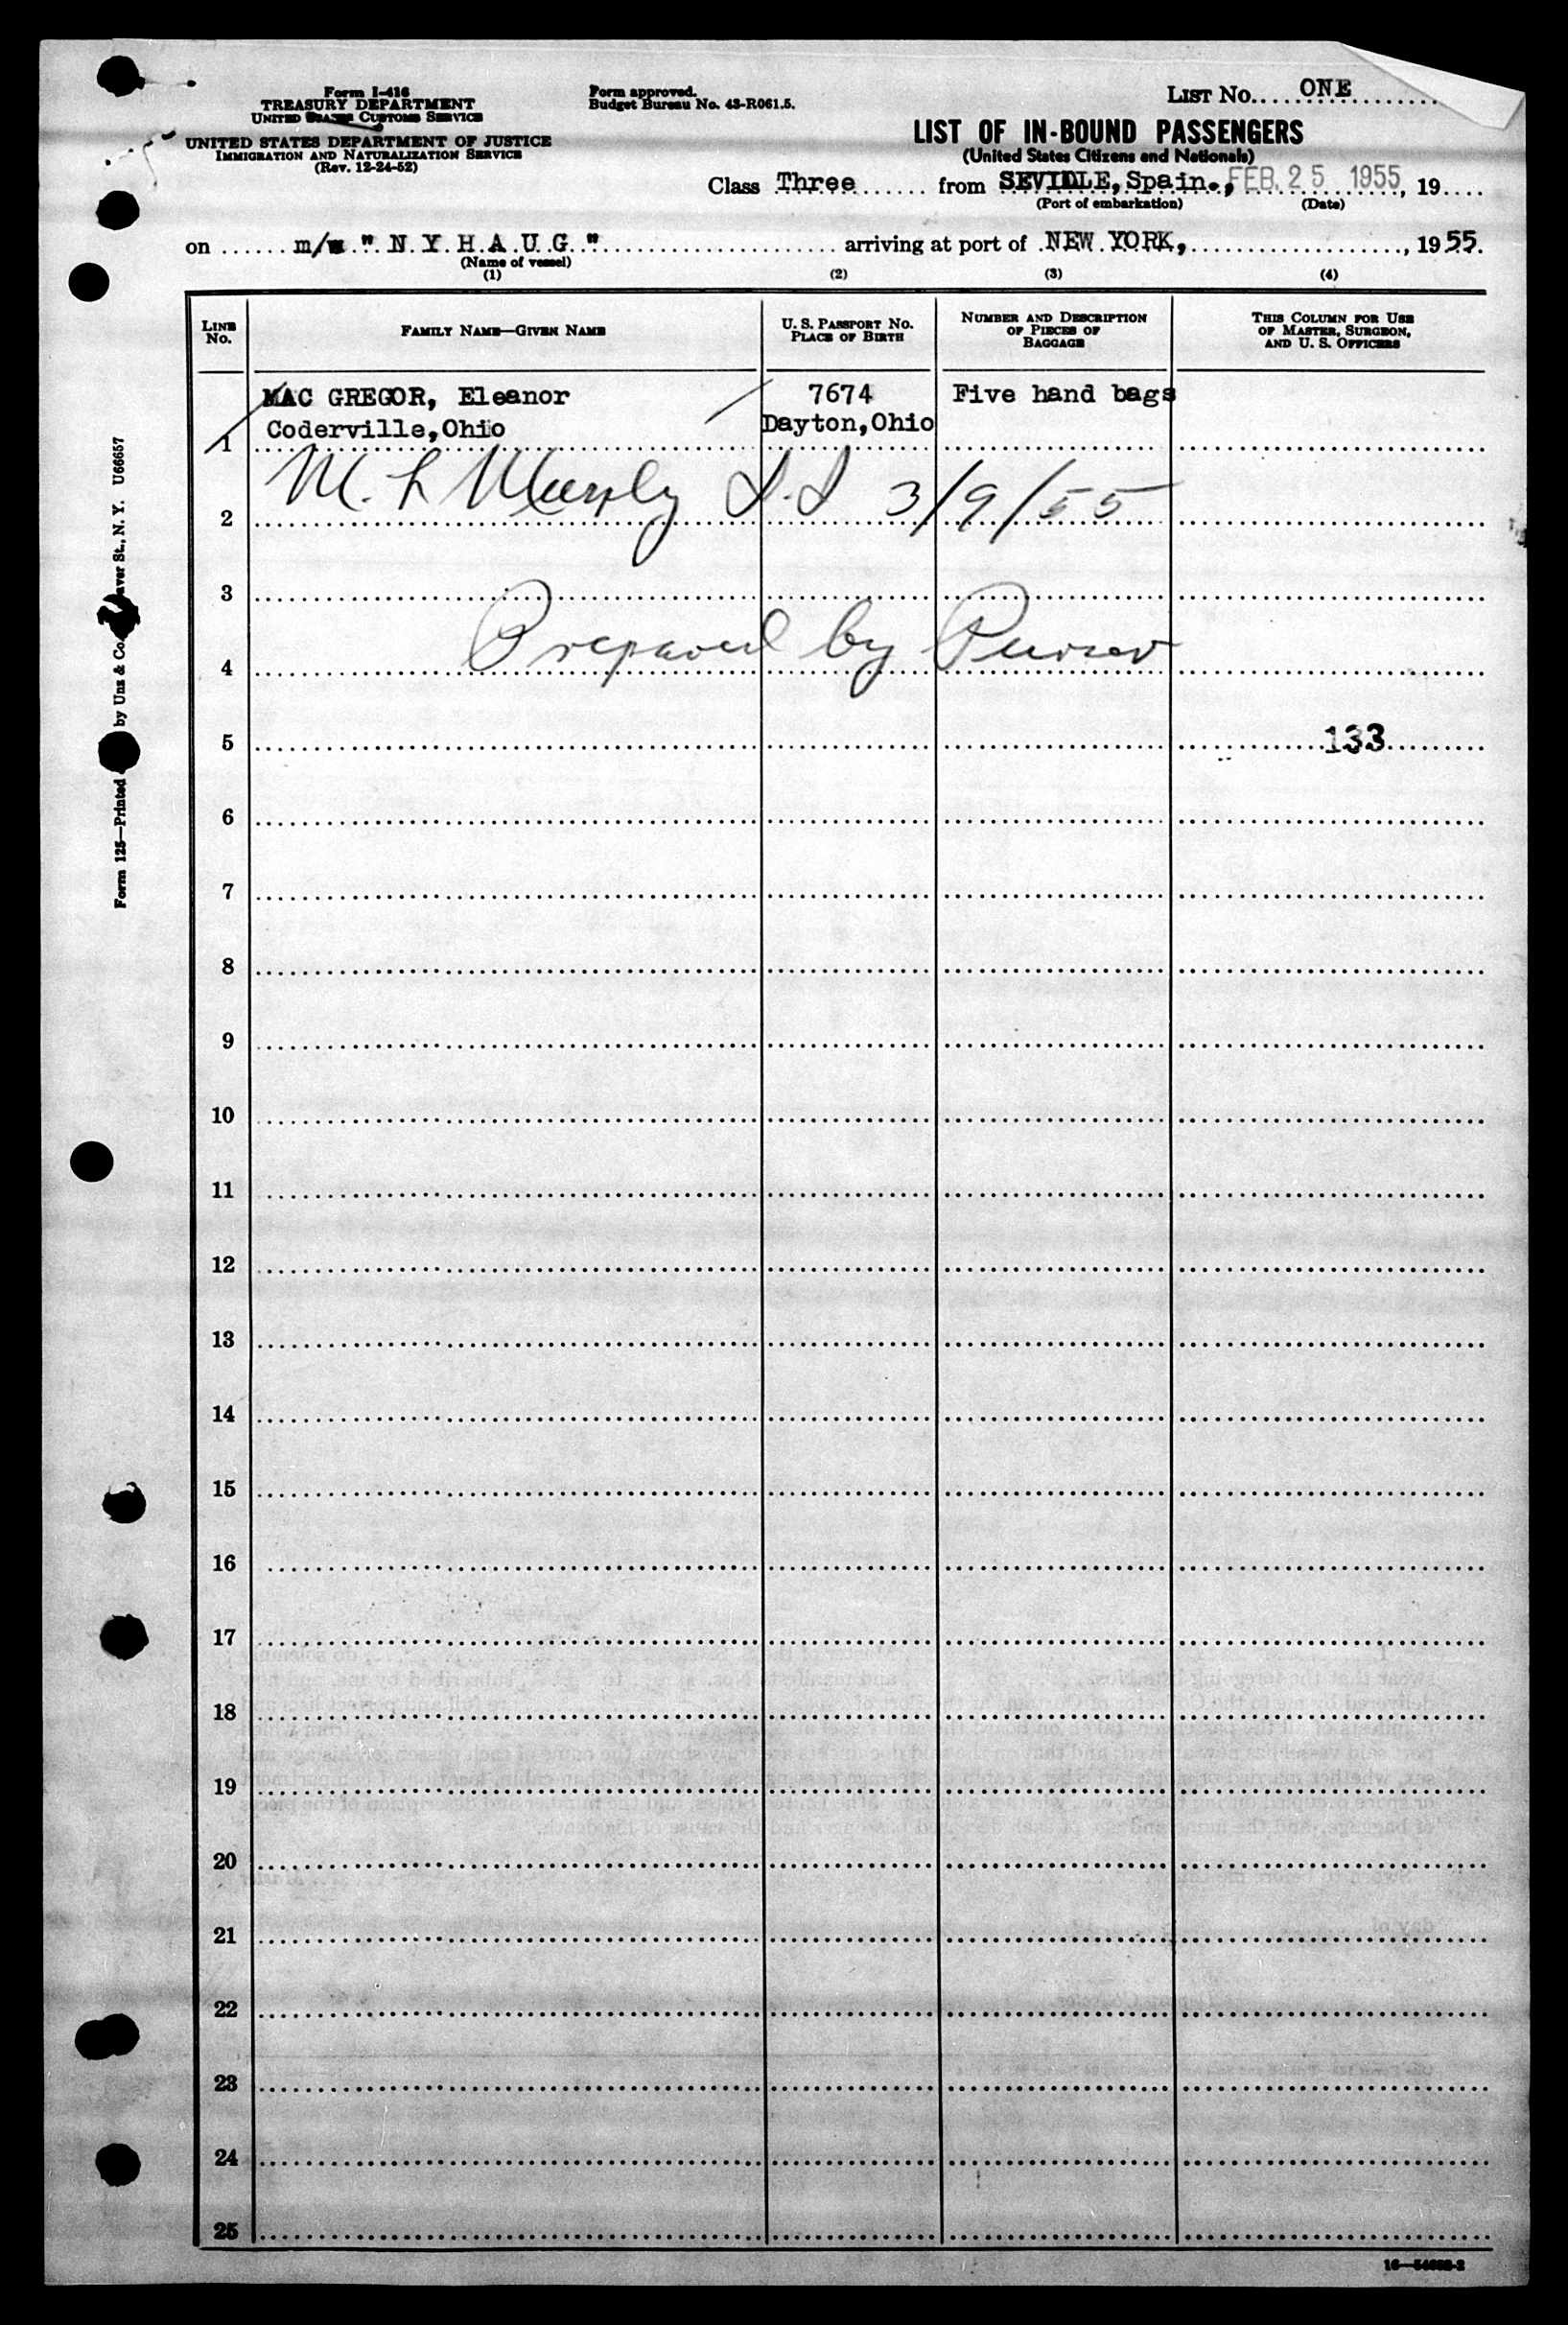 Form I-416
TREASURY DEPARTMENT
UNITED STATES CUSTOMS SERVICE
UNITED STATES DEPARTMENT OF JUSTICE
IMMIGRATION AND NATURALIZATION SERVICE
(Rev. 12-24-52)
Form approved.
Budget Bureau No. 43-R061.5.
LIST NO. ONE
LIST OF IN-BOUND PASSENGERS
(United States Citizens and Nationals)
Class Three from SEVILLE, Spain., FEB. 25 1955, 19
(Port of embarkation) (Date)
on m/s " N Y H A U G " arriving at port of NEW YORK, , 1955.
(Name of vessel)
(1) (2) (3) (4)
LINE NO.
FAMILY NAME—GIVEN NAME
U. S. PASSPORT NO.
PLACE OF BIRTH
NUMBER AND DESCRIPTION
OF PIECES OF
BAGGAGE
THIS COLUMN FOR USE
OF MASTER, SURGEON,
AND U. S. OFFICERS
MAC GREGOR, Eleanor 7674 Five hand bags
Coderville, Ohio Dayton, Ohio
1
M. L Murphy I.I 3/9/55
2
3
Prepared by Purser
4
5 133
6
7
8
9
10
11
12
13
14
15
16
17
18
19
20
21
22
23
24
25
Form 125—Printed by Unz & Co. aver St., N. Y. U66657